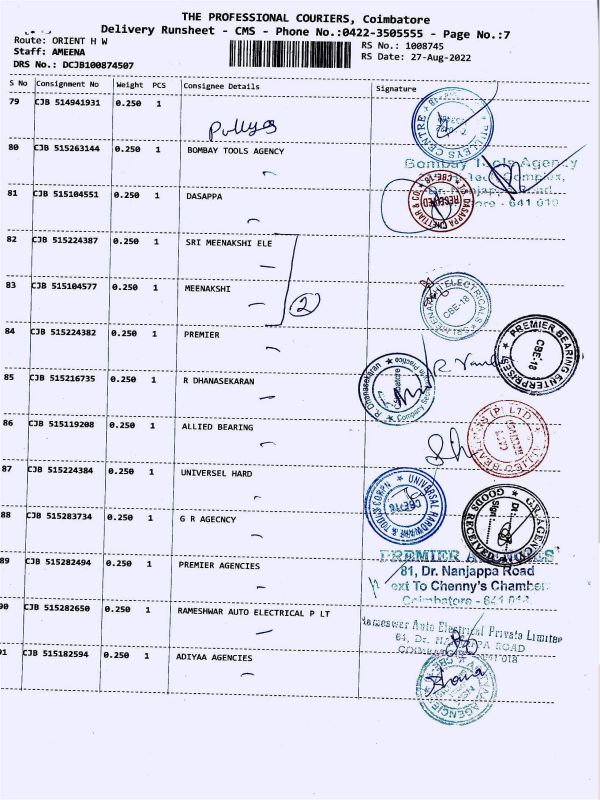 THE PROFESSIONAL COURIERS, Coimbatore
Delivery Runsheet - CMS - Phone No.:0422-3505555 - Page No.:7
Route: ORIENT H W
Staff: AMEENA
DRS No.: DCJB100874507
RS No.: 1008745
RS Date: 27-Aug-2022
S No Consignment No Weight PCS Consignee Details Signature
79 CJB 514941931 0.250 1
PULLEYS CENTRE
80 CJB 515263144 0.250 1 BOMBAY TOOLS AGENCY
Bombay Tools Agency
Complex,
Dr. Nanjappa Road
ore - 641 018
81 CJB 515104551 0.250 1 DASAPPA
DASAPPA CHETTIAR & CO. CBE-18
RECEIVED
82 CJB 515224387 0.250 1 SRI MEENAKSHI ELE
83 CJB 515104577 0.250 1 MEENAKSHI
2
ELECTRICALS
CBE-18
84 CJB 515224382 0.250 1 PREMIER
PREMIER BEARING ENTERPRISES
CBE-18
85 CJB 515216735 0.250 1 R DHANASEKARAN
R Dhanasekaran
Coimbatore
Company Secretary
86 CJB 515119208 0.250 1 ALLIED BEARING
ALLIED BEARINGS (P) LTD
87 CJB 515224384 0.250 1 UNIVERSEL HARD
UNIVERSAL HARDWARE & TOOLS CORPN
CBE-18
88 CJB 515283734 0.250 1 G R AGECNCY
G.R.AGENCY
GOODS RECEIVED
Dt:
Sign
89 CJB 515282494 0.250 1 PREMIER AGENCIES
PREMIER AGENCIES
81, Dr. Nanjappa Road
ext To Chenny's Chamber
Coimbatore - 641 018
90 CJB 515282650 0.250 1 RAMESHWAR AUTO ELECTRICAL P LT
Rameswer Auto Electrical Private Limited
64, Dr. NANJAPPA ROAD
641 018
91 CJB 515182594 0.250 1 ADIYAA AGENCIES